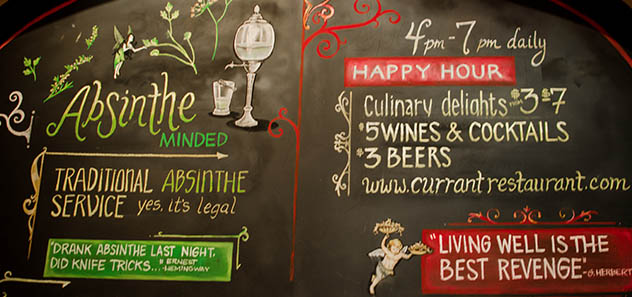 Absinthe
MINDED
TRADITIONAL ABSINTHE
SERVICE yes, it's legal
"DRANK ABSINTHE LAST NIGHT.
DID KNIFE TRICKS..."
- ERNEST
HEMINGWAY
4pm - 7pm daily
HAPPY HOUR
Culinary delights from $3-$7
$5 WINES & COCKTAILS
$3 BEERS
www.currantrestaurant.com
"LIVING WELL IS THE
BEST REVENGE" -G. HERBERT